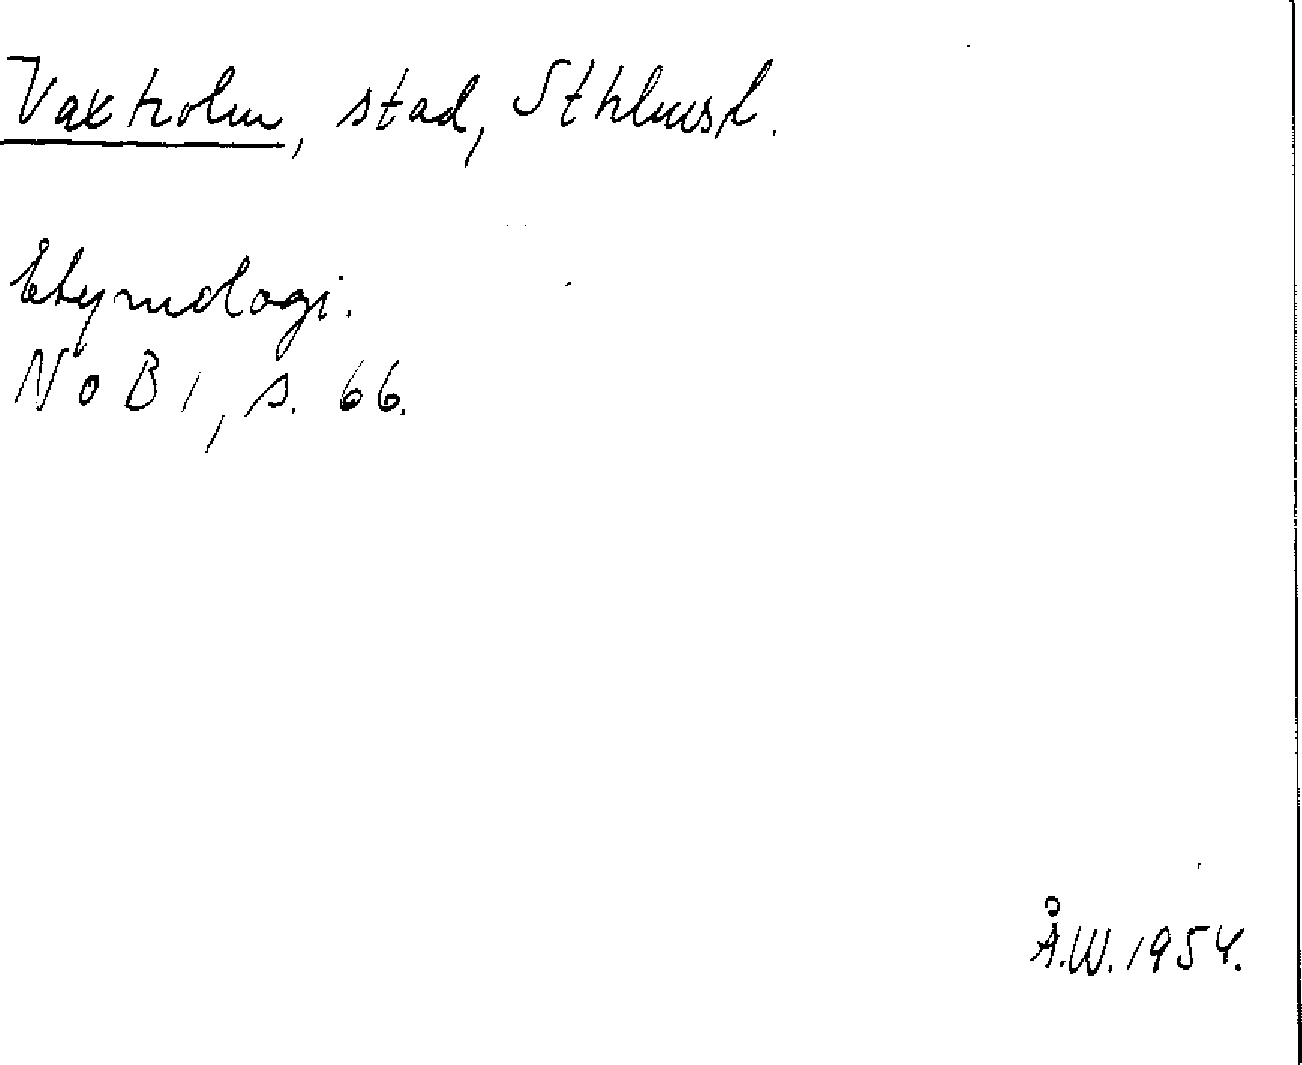 Vaxholm, stad, Sthlmsl.
Etymologi.
NoB 1, s. 66.
Å.W. 1954.